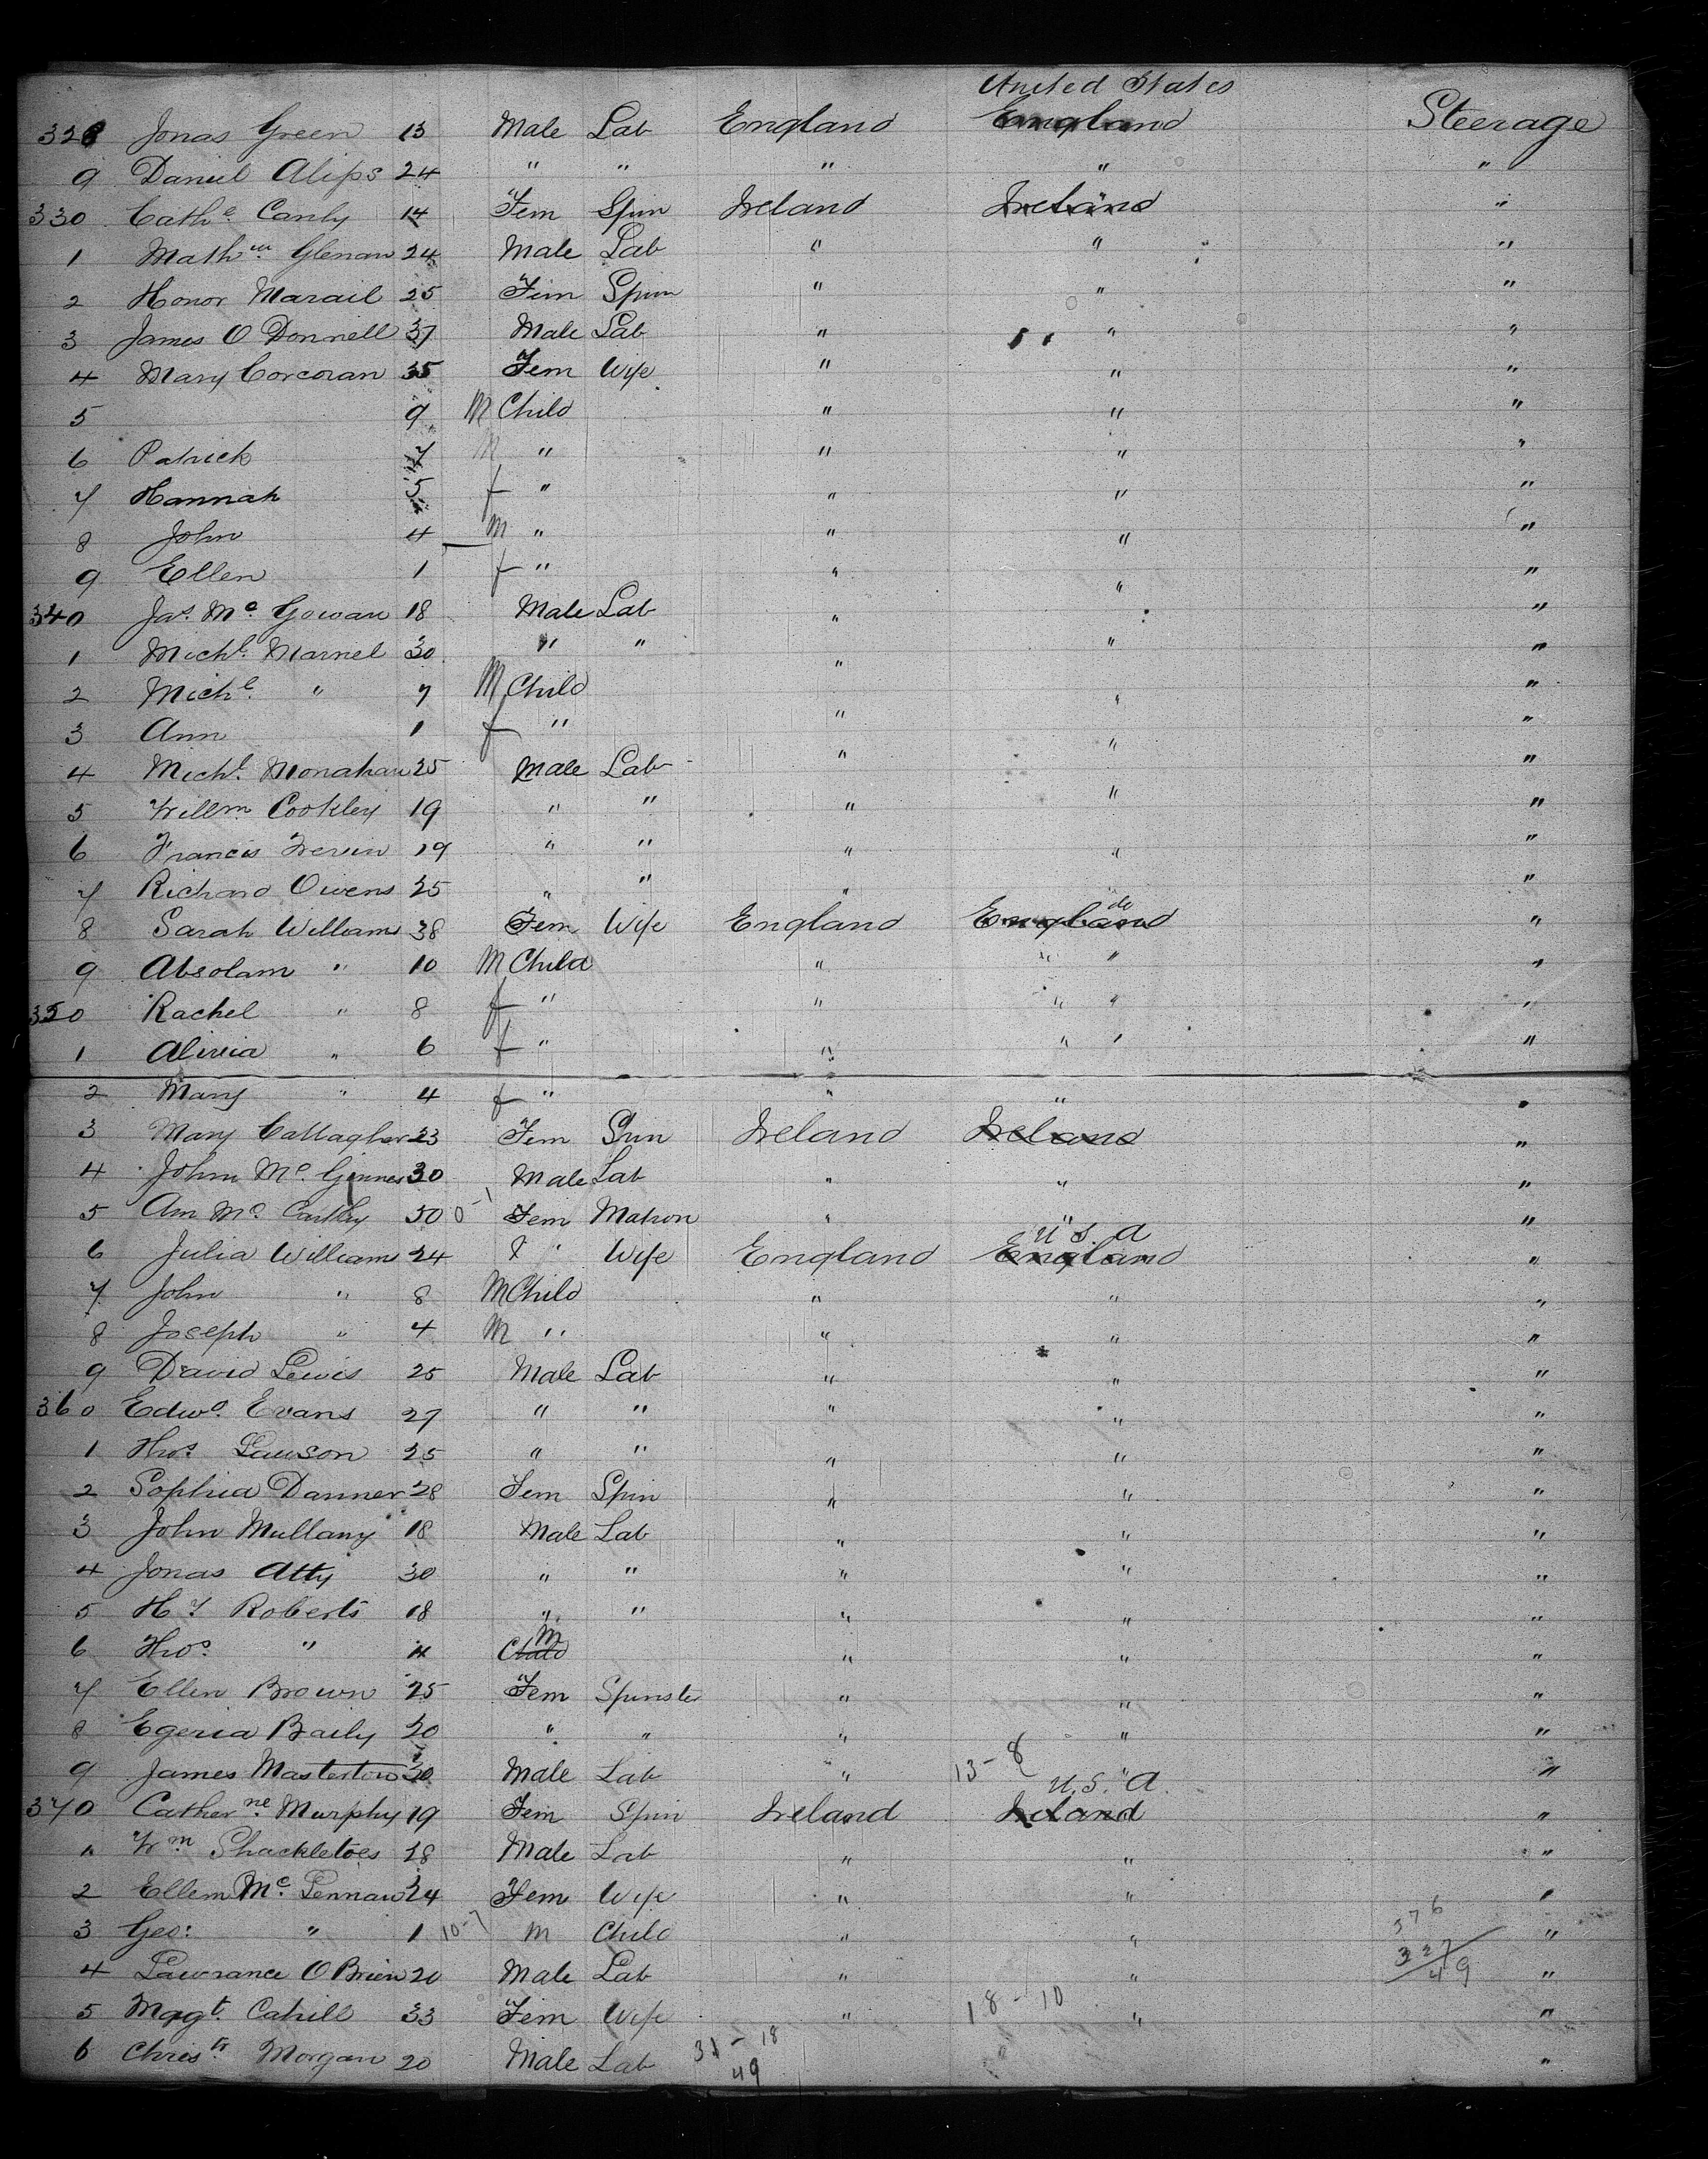 United States
328 Jonas Green 13 Male Lab England England Steerage
9 Daniel Alips 24 " " " " "
330 Cathe Canly 14 Fem Spin Ireland Ireland "
1 Mathw Glenan 24 Male Lab " " "
2 Honor Marail 25 Fem Spin " " "
3 James O Donnell 37 Male Lab " " "
4 Mary Corcoran 35 Fem Wife " " "
5 9 M Child " " "
6 Patrick 7 M " " " "
7 Hannah 5 f " " " "
8 John 4 M " " " "
9 Ellen 1 f " " " "
340 Jas Mc Gowan 18 Male Lab " " "
1 Michl Marnel 30 " " " " "
2 Michl " 7 M Child " " "
3 Ann 1 f " " " "
4 Michl Monahan 25 Male Lab " " "
5 Willm Cookley 19 " " " " "
6 Francis 19 " " " " "
7 Richard Owens 25 " " "
8 Sarah Williams 38 Fem Wife England England do "
9 Absolam " 10 M Child " " " "
350 Rachel " 8 f " " " " "
1 Alivia " 6 f " " " " "
2 Mary " 4 f " " " "
3 Mary Callagher 23 Fem Spin Ireland Ireland "
4 John Mc Ginnes 30 Male Lab " " "
5 Ann Mc Carthy 50 Fem Matron " " "
U S A
6 Julia Williams 24 " Wife England England "
7 John " 8 M Child " " "
8 Joseph " 4 M " " " "
9 David Lewis 25 Male Lab " " "
360 Edwd Evans 27 " " " " "
1 Thos Lawson 25 " " " " "
2 Sophia Danner 28 Fem Spin " " "
3 John Mullany 18 Male Lab " " "
4 Jonas Atty 30 " " " " "
5 Hy Roberts 18 " " " " "
6 Thos " 4 Child M " " "
7 Ellen Brown 25 Fem Spinster " " "
8 Egeria Baily 20 " " " " "
9 James Masterton 30 Male Lab " 13-8 " "
U.S. A.
370 Catherne Murphy 19 Fem Spin Ireland Ireland "
1 Wm Shackletoes 28 Male Lab " " "
2 Ellen Mc Lennan 24 Fem Wife " " "
3 Geo: " 1 10-7 M Child " " 576 "
4 Lawrance O Brien 20 Male Lab " " 327 49 "
5 Magt Cahill 33 Fem Wife " 18-10 " "
6 Christr Morgan 20 Male Lab 31-18 "
49